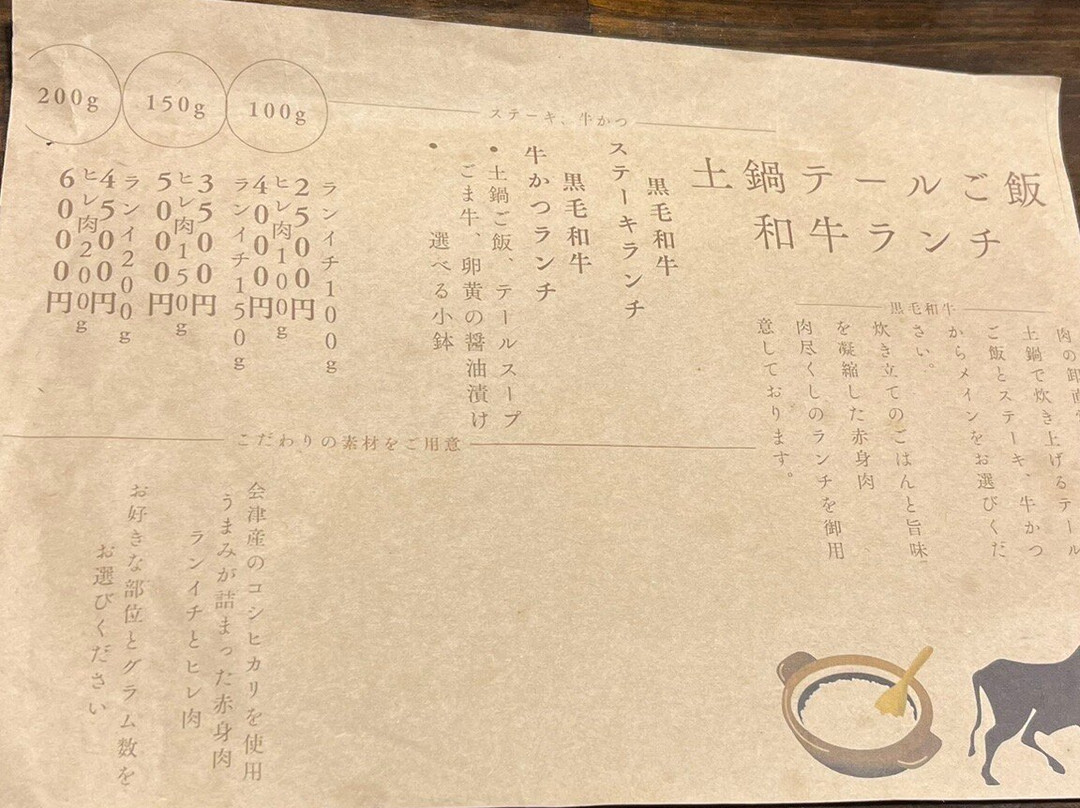 土鍋テールご飯
和牛ランチ
黒毛和牛
肉の卸
土鍋で炊き上げるテール
ご飯とステーキ、牛かつ
からメインをお選びくだ
さい。
炊き立てのごはんと旨味
を凝縮した赤身肉
肉尽くしのランチを御用
意しております。
ステーキ、牛かつ
黒毛和牛
ステーキランチ
黒毛和牛
牛かつランチ
・土鍋ご飯、テールスープ
ごま牛、卵黄の醤油漬け
・選べる小鉢
100g
ランイチ100g
2500円
ヒレ肉100g
4000円
150g
ランイチ150g
3500円
ヒレ肉150g
5000円
200g
ランイ200g
4500円
ヒレ肉200g
6000円
こだわりの素材をご用意
会津産のコシヒカリを使用
うまみが詰まった赤身肉
ランイチとヒレ肉
お好きな部位とグラム数を
お選びください